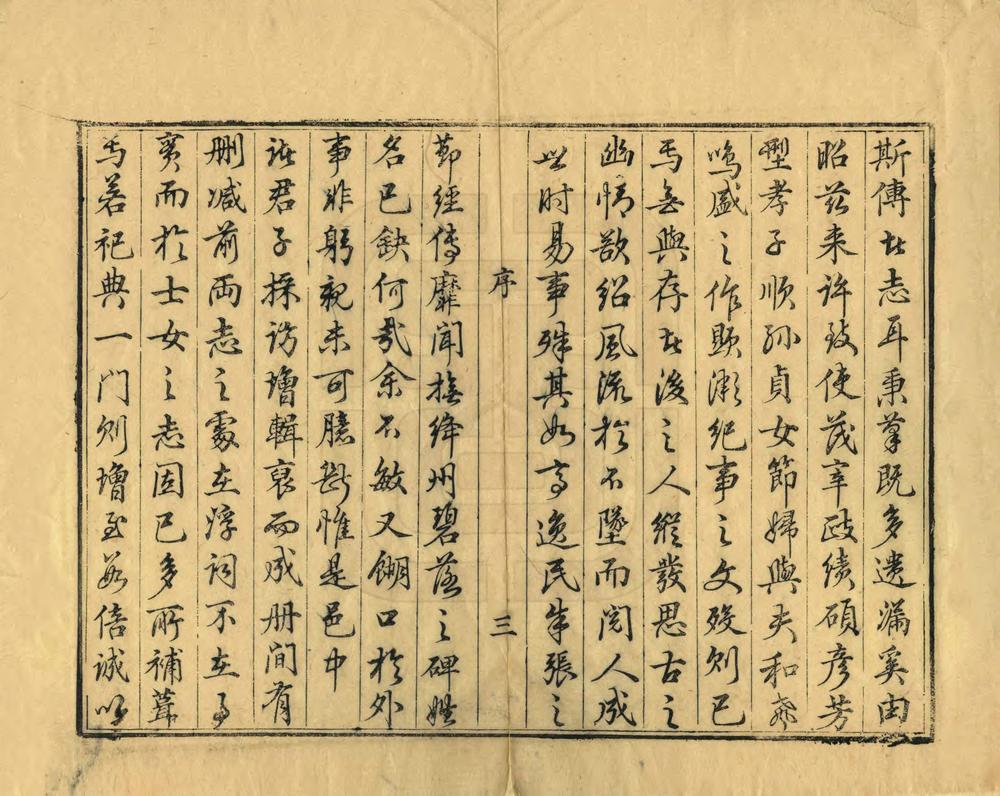 斯傳者志耳秉筆既多遺漏奚由
昭茲来許致使茂宰政績碩彥芳
型孝子順孫貞女節婦與夫和聲
鳴盛之作顯微紀事之文歿則已
焉無與存者後之人縱發思古之
幽情欲紹風流於不墜而閱人成
世时易事殊其如高逸民朱張之
序 三
節經傳靡聞撫絳州碧落之碑姓
名已缺何哉余不敏又餬口於外
事非躬親未可臆斷惟是邑中
諸君子採訪增輯裒而成册间有
刪减前両志之處在浮词不在事
實而於士女之志固已多所補葺
焉若祀典一門则增至數倍诚以